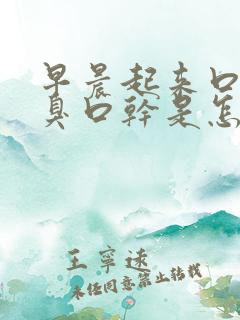 早晨起来口
臭口幹是怎
王寧遠
未经同意禁止转载